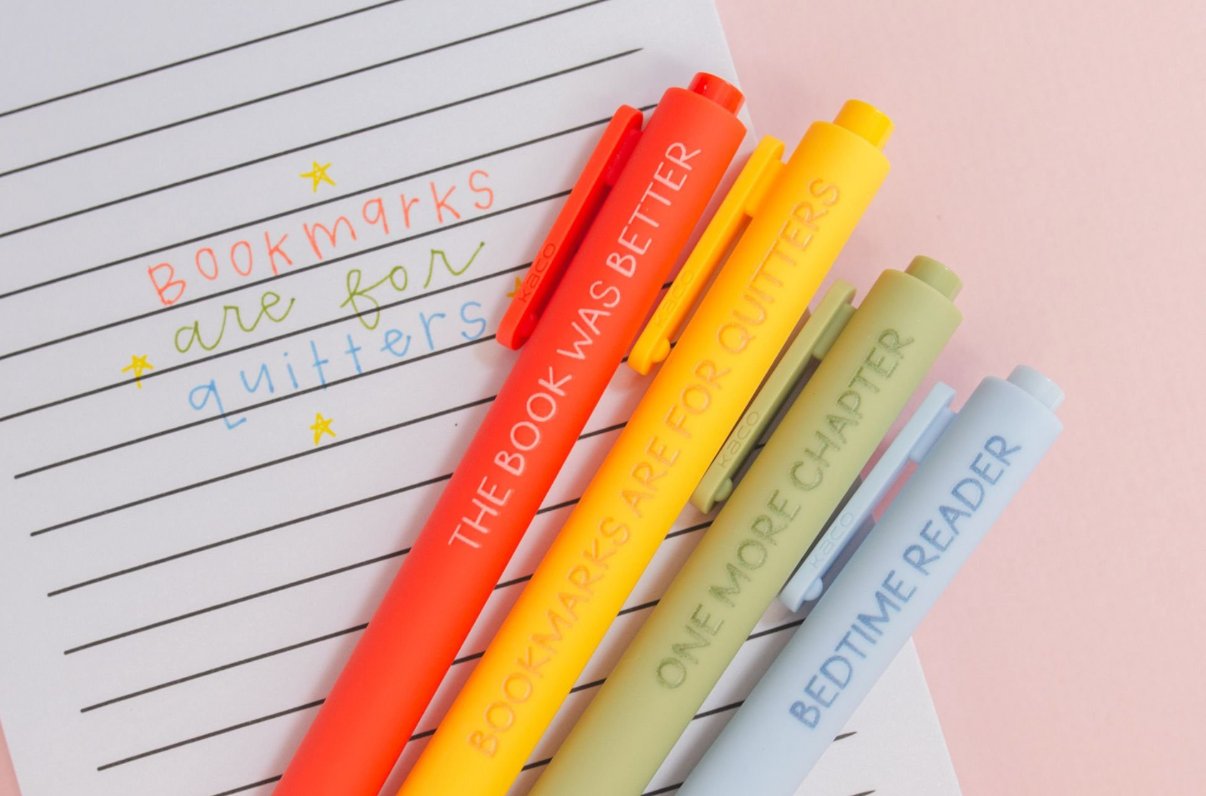 Bookmarks
are for
quitters
kaco
THE BOOK WAS BETTER
kaco
BOOKMARKS ARE FOR QUITTERS
kaco
ONE MORE CHAPTER
kaco
BEDTIME READER